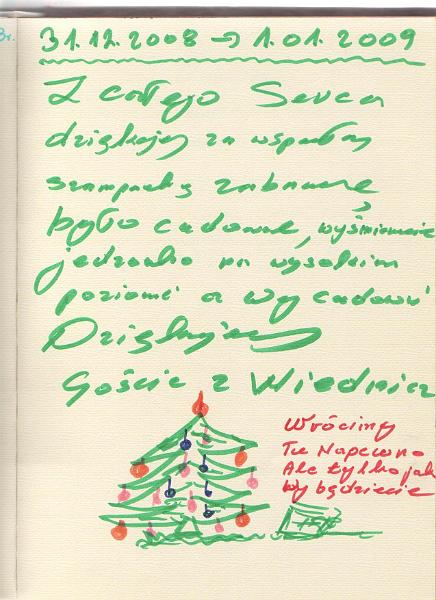 31.12.2008 → 1.01.2009
Z całego Serca
dziękujemy za wspaniałą
szampańską zabawę
było cudowne, wyśmienicie
jedzonko na wysokim
poziomie a Wy cudowni
Dziękujemy
Goście z Wiednia
Wrócimy
Tu Napewno
Ale tylko jak
Wy będziecie